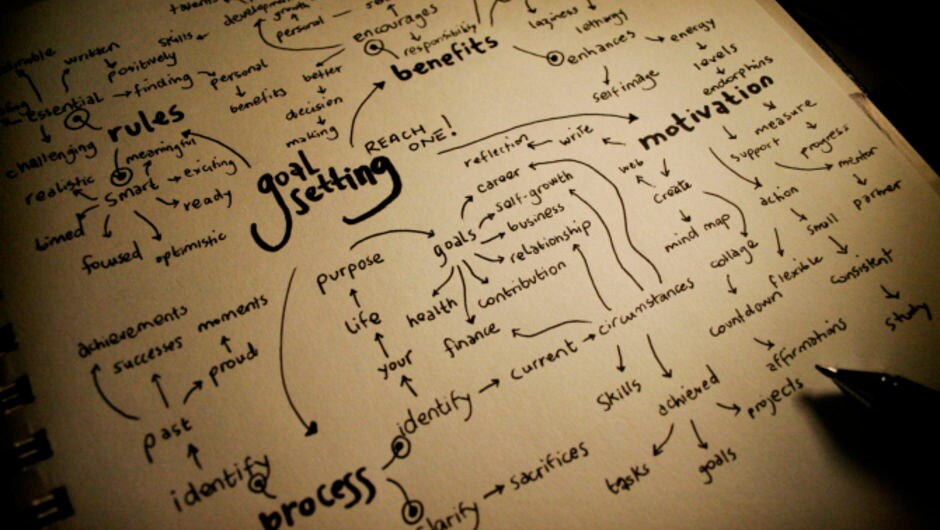 talents
development
growth
personal
skills
encourages
responsibility
benefits
laziness
lethargy
enhances
self image
energy
levels
endorphins
written
positively
essential
finding
personal
benefits
better
decision
making
rules
challenging
meaningful
realistic
smart
exciting
ready
timed
focused
optimistic
goal
setting
REACH
ONE!
motivation
reflection
write
web
create
mind map
collage
countdown
measure
progress
support
mentor
partner
action
small
consistent
study
flexible
affirmations
purpose
goals
career
self-growth
business
relationship
contribution
health
finance
life
your
identify
current
circumstances
skills
achieved
projects
tasks
goals
achievements
successes
moments
proud
past
identify
process
clarify
sacrifices